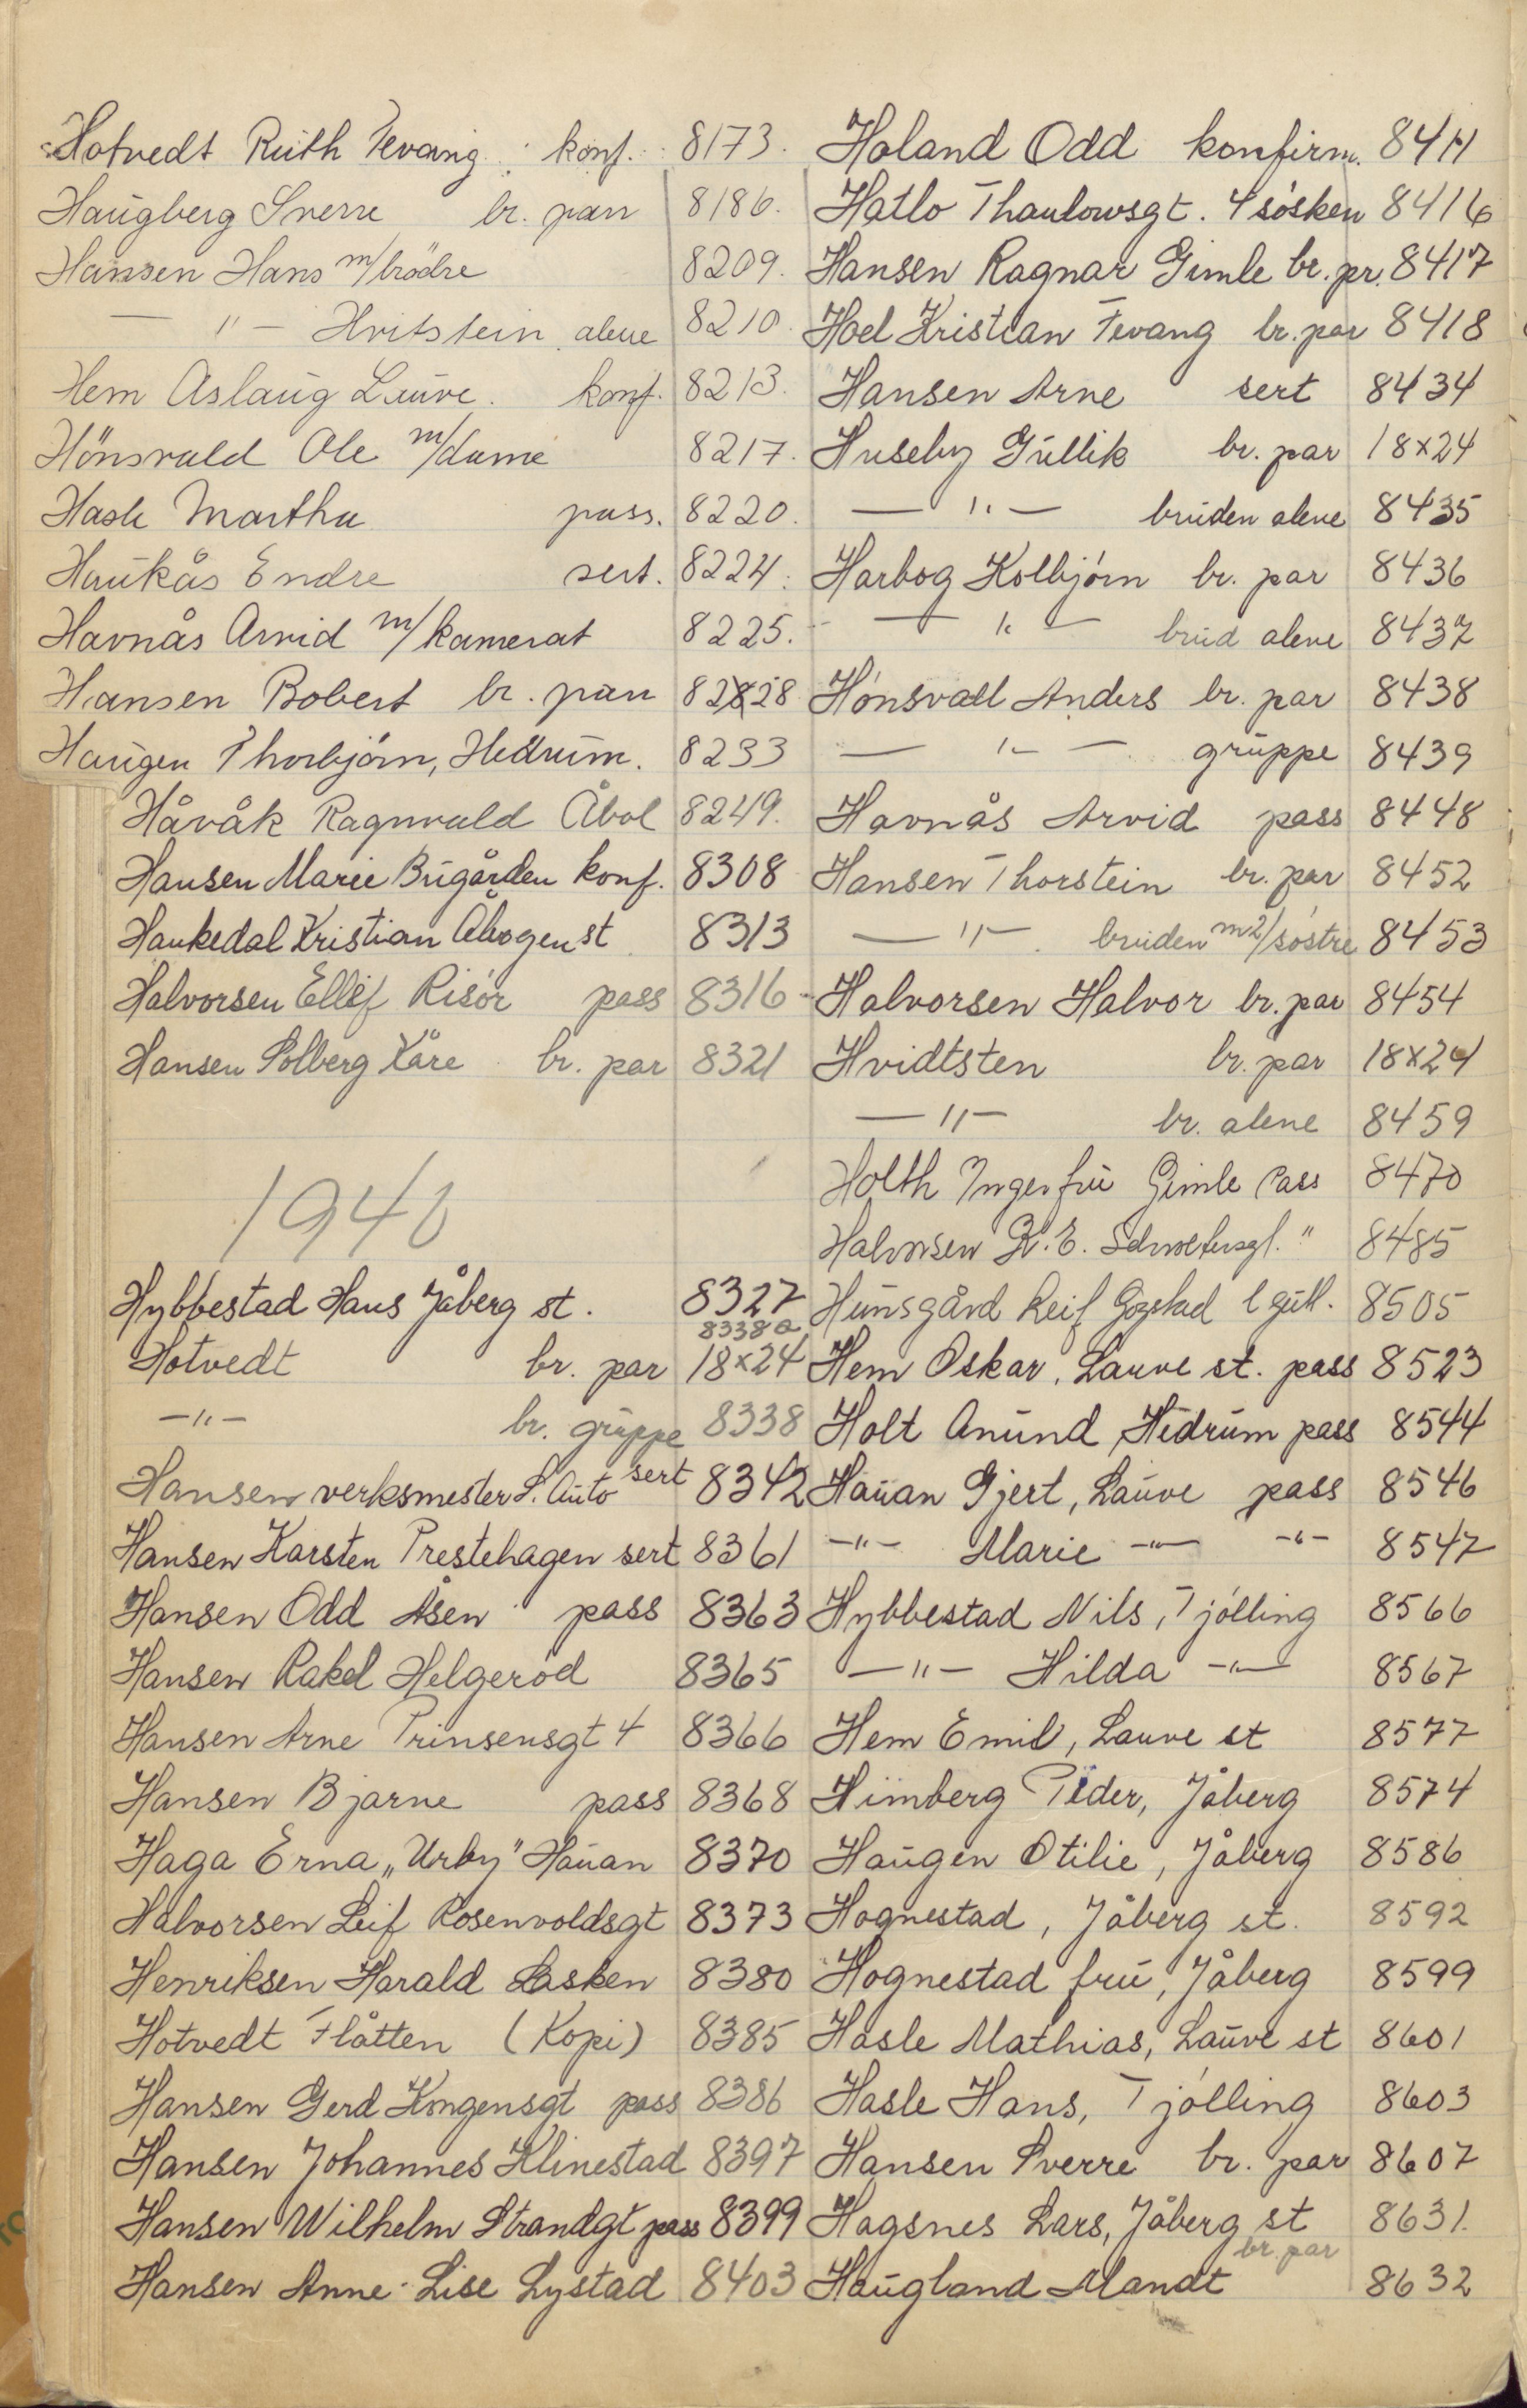 Hotvedt Ruth Tevang. konf. 8173.
Haugberg Sverre br. par 8186.
Hansen Hans m/brödre 8209.
— " — Hvitstein alene 8210.
Hem Aslaug Lauve. konf. 8213.
Hönsvald Ole m/dame 8217.
Hasle Martha pass. 8220.
Haukås Endre sert. 8224.
Havnås Arvid m/kamerat 8225.
Hansen Robert br. par 8228
Haugen Thorbjörn, Hedrum. 8233
Håvåk Ragnvald Åbol 8249.
Hansen Marie Bugården konf. 8308
Haukedal Kristian Åbogen st 8313
Halvorsen Ellef Risör pass 8316
Hansen Solberg Kåre br. par 8321
1940
Hybbestad Hans Jåberg st. 8327
8338a
Hotvedt br. par 18x24
— " — br. gruppe 8338
Hansen verksmester L. Auto sert 8342
Hansen Karsten Prestehagen sert 8361
Hansen Odd Åsen pass 8363
Hansen Rakel Helgeröd 8365
Hansen Arne Prinsensgt 4 8366
Hansen Bjarne pass 8368
Haga Erna „Urby" Hauan 8370
Halvorsen Leif Rosenvoldsgt 8373
Henriksen Harald Lasken 8380
Hotvedt Flåtten (Kopi) 8385
Hansen Gerd Kongensgt pass 8386
Hansen Johannes Klinestad 8397
Hansen Wilhelm Strandgt pass 8399
Hansen Anne-Lise Lystad 8403
Holand Odd konfirm. 8411
Hatlo Thaulowsgt. 4 sösken 8416
Hansen Ragnar Gimle br. pr. 8417
Hoel Kristian Tevang br. par 8418
Hansen Arne sert 8434
Huseby Gullik br. par 18x24
— " — bruden alene 8435
Harbog Kolbjörn br. par 8436
— " — brud alene 8437
Hönsvall Anders br. par 8438
— " — gruppe 8439
Havnås Arvid pass 8448
Hansen Thorstein br. par 8452
— " — bruden m2/söstre 8453
Halvorsen Halvor br. par 8454
Hvidtsten br. par 18x24
— " — br. alene 8459
Holth Inger fru Gimle Pass 8470
Halvorsen K. E. " 8485
Hunsgård Leif Gogstad 8505
Hem Oskar, Lauve st. pass 8523
Holt Anund, Hedrum pass 8544
Hauan Gjert, Lauve pass 8546
— " — Marie — " — — " — 8547
Hybbestad Nils, Tjölling 8566
— " — Hilda — " — 8567
Hem Emil, Lauve st 8577
Himberg Peder, Jåberg 8574
Haugen Otilie, Jåberg 8586
Hognestad, Jåberg st. 8592
Hognestad fru, Jåberg 8599
Hasle Mathias, Lauve st 8601
Hasle Hans, Tjölling 8603
Hansen Sverre br. par 8607
Hagsnes Lars, Jåberg st 8631.
Haugland Mandt br. par 8632